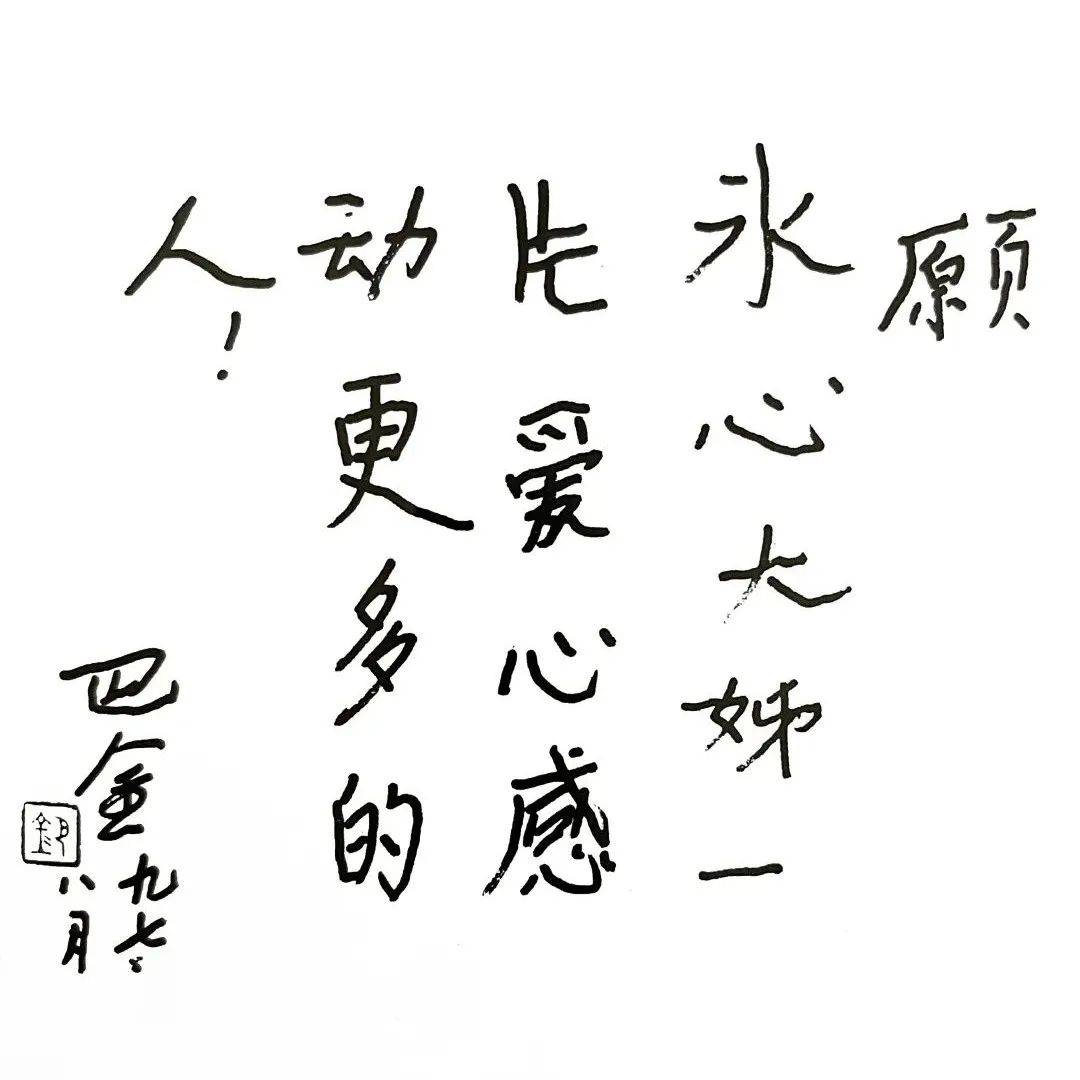 愿
冰心大姊一
片爱心感
动更多的
人！
巴金 九七、
八月